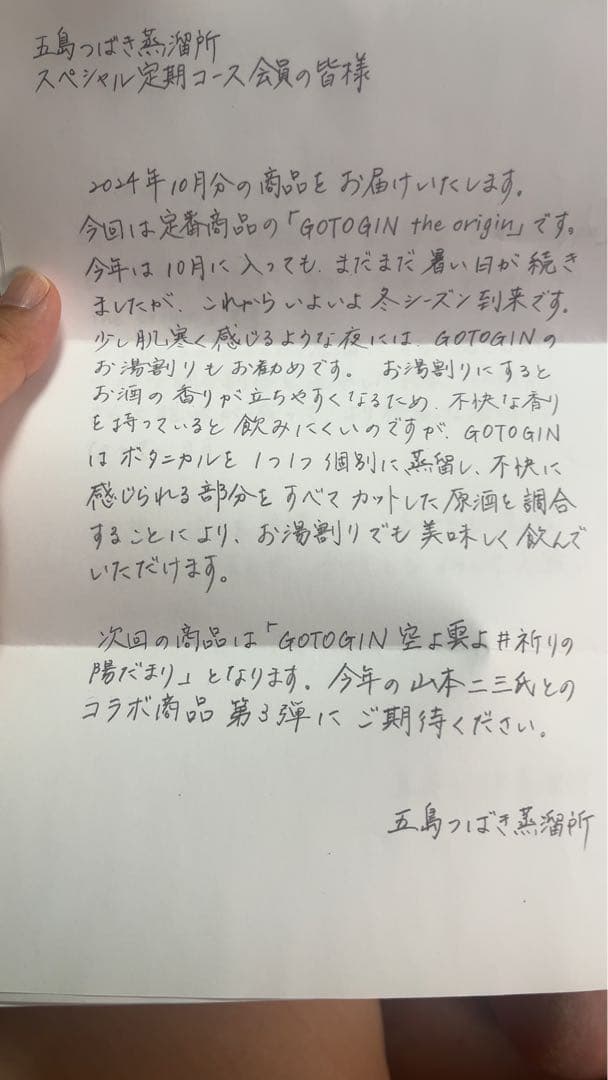 五島つばき蒸溜所
スペシャル定期コース会員の皆様
2024年10月分の商品をお届けいたします。
今回は定番商品の「GOTOGIN the origin」です。
今年は10月に入っても、まだまだ暑い日が続き
ましたが、これからいよいよ冬シーズン到来です。
少し肌寒く感じるような夜には、GOTOGINの
お湯割りもお勧めです。 お湯割りにすると
お酒の香りが立ちやすくなるため、不快な香り
を持っていると飲みにくいのですが、GOTOGIN
はボタニカルを1つ1つ個別に蒸留し、不快に
感じられる部分をすべてカットした原酒を調合
することにより、お湯割りでも美味しく飲んで
いただけます。
次回の商品は「GOTOGIN 空よ雲よ#祈りの
陽だまり」となります。今年の山本二三氏との
コラボ商品 第3弾にご期待ください。
五島つばき蒸溜所